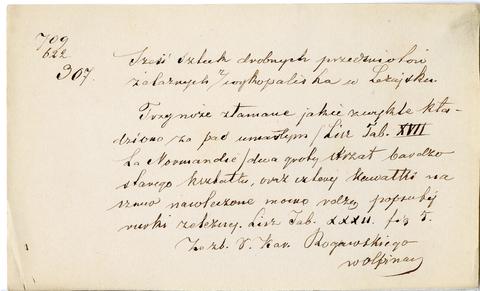 709
622
307.
Sześć sztuk drobnych przedmiotów
żelaznych z wykopaliska w Leżajsku.
Trzy noże złamane jakie zwykle kła-
dziono za pas umarłym / Lisz Tab. XVII
La Normandie / dwa groty strzał bardzo
starego kształtu, oraz cztery kawałki na
nawleczone rodzaj
rurki żelaznej. Lisz Tab. XXXII. fig 5.
Ze zb. Kar. Rogawskiego
w Ołpinach